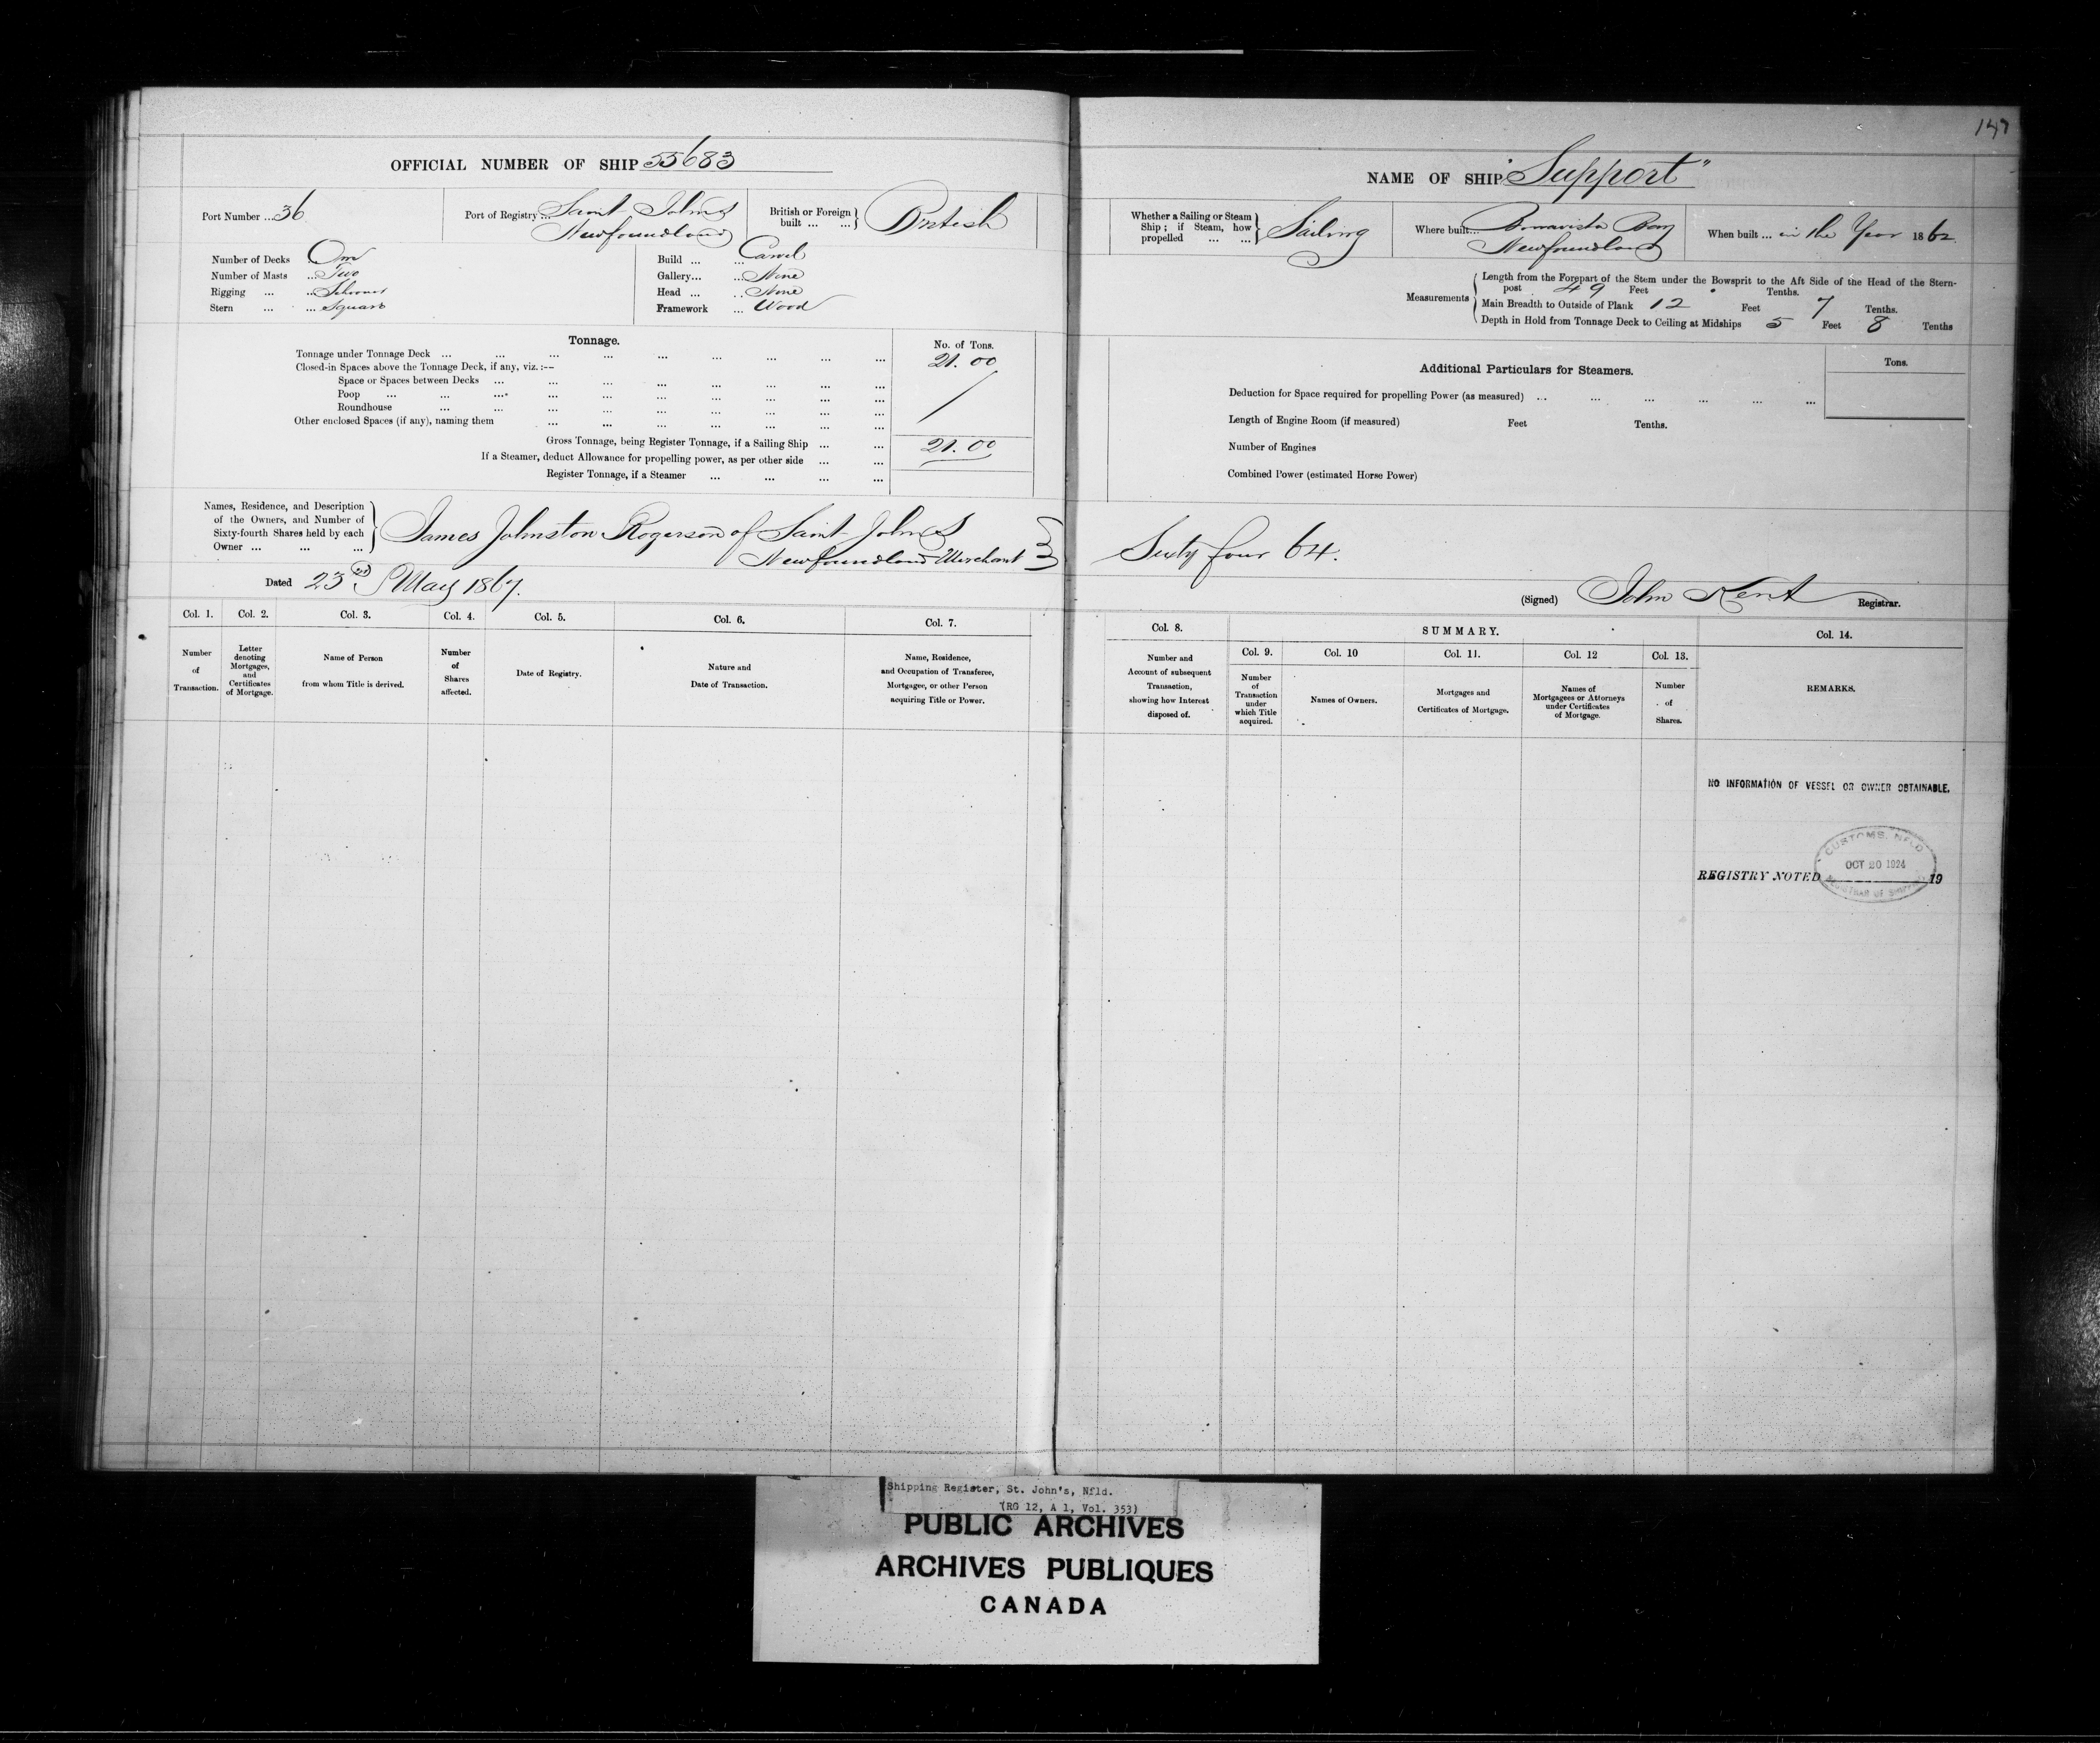 147
OFFICIAL NUMBER OF SHIP 55683
Port Number ... 36
Port of Registry ... Saint John's
Newfoundland
British or Foreign built ... ... } British
Number of Decks One
Number of Masts ... Two
Rigging ... ... Schooner
Stern ... ... Square
Build ... ... Carvel
Gallery... ... None
Head ... ... None
Framework ... Wood
Tonnage.
No. of Tons.
Tonnage under Tonnage Deck ... 21.00
Closed-in Spaces above the Tonnage Deck, if any, viz. :—
Space or Spaces between Decks ...
Poop ...
Roundhouse ...
Other enclosed Spaces (if any), naming them ...
Gross Tonnage, being Register Tonnage, if a Sailing Ship ... 21.00
If a Steamer, deduct Allowance for propelling power, as per other side ...
Register Tonnage, if a Steamer ...
Names, Residence, and Description
of the Owners, and Number of
Sixty-fourth Shares held by each
Owner ... ... ...
James Johnston Rogerson of Saint John's
Newfoundland Merchant
Dated 23rd May 1867.
Col. 1. Col. 2. Col. 3. Col. 4. Col. 5. Col. 6. Col. 7.
Number of Transaction.
Letter denoting Mortgages, and Certificates of Mortgage.
Name of Person from whom Title is derived.
Number of Shares affected.
Date of Registry.
Nature and Date of Transaction.
Name, Residence, and Occupation of Transferee, Mortgagee, or other Person acquiring Title or Power.
NAME OF SHIP "Support"
Whether a Sailing or Steam Ship ; if Steam, how propelled ... ... } Sailing
Where built... Bonavista Bay
Newfoundland
When built ... in the Year 1862.
Measurements
Length from the Forepart of the Stem under the Bowsprit to the Aft Side of the Head of the Stern-
post 49 Feet . Tenths.
Main Breadth to Outside of Plank 12 Feet 7 Tenths.
Depth in Hold from Tonnage Deck to Ceiling at Midships 5 Feet 8 Tenths
Additional Particulars for Steamers.
Tons.
Deduction for Space required for propelling Power (as measured) ...
Length of Engine Room (if measured) Feet Tenths.
Number of Engines
Combined Power (estimated Horse Power)
Sixty four 64.
(Signed) John Kent Registrar.
Col. 8.
SUMMARY.
Col. 9. Col. 10 Col. 11. Col. 12 Col. 13.
Col. 14.
Number and Account of subsequent Transaction, showing how Interest disposed of.
Number of Transaction under which Title acquired.
Names of Owners.
Mortgages and Certificates of Mortgage.
Names of Mortgagees or Attorneys under Certificates of Mortgage.
Number of Shares.
REMARKS.
NO INFORMATION OF VESSEL OR OWNER OBTAINABLE.
CUSTOMS, NFLD
OCT 20 1924
REGISTRAR OF SHIPPING
REGISTRY NOTED 19
Shipping Register, St. John's, Nfld.
(RG 12, A 1, Vol. 353)
PUBLIC ARCHIVES
ARCHIVES PUBLIQUES
CANADA